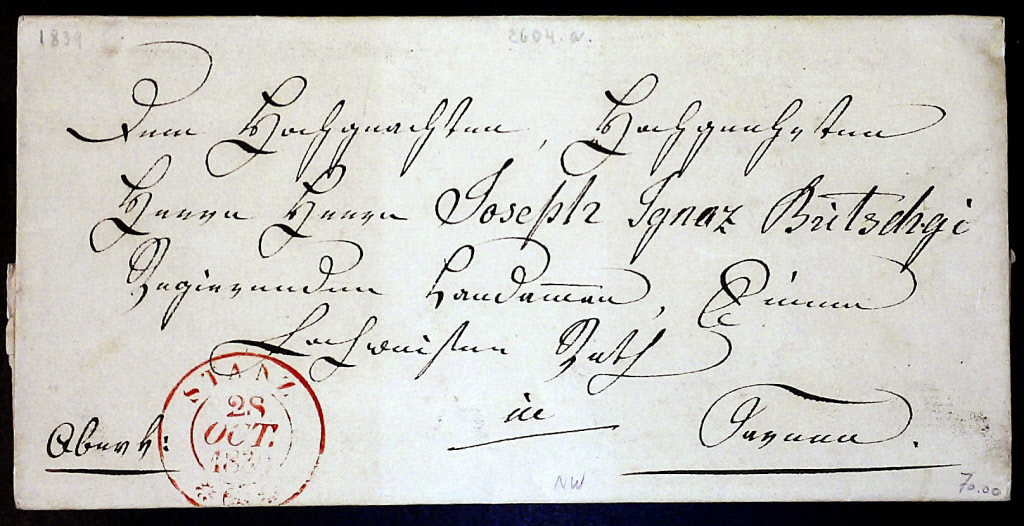 1839
2604.a.
Dem Hochgeachten, Hochgeehrten
Herrn Herrn Joseph Ignaz Bütschgi
Regierenden Landamman, Einem
Hochweisen Rath
in
Sarnen.
STANZ
28
OCT.
NW
70.00